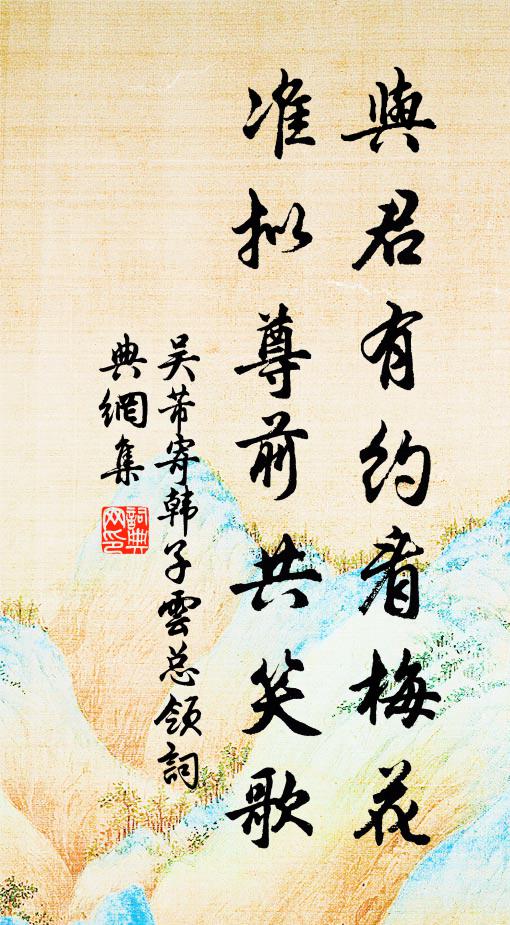 與君有約看梅花
准拟尊前共笑歌
吴芾寄韩子雲总领詞
典網集
詞典
网印